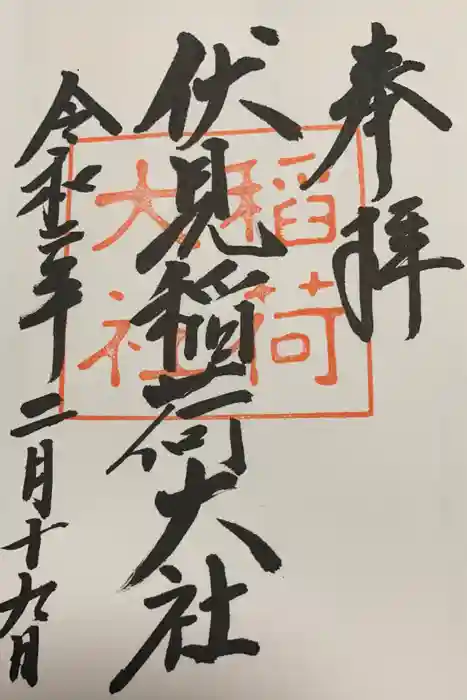 奉拝
伏見稲荷大社
令和二年 二月十九日
稲荷
大社